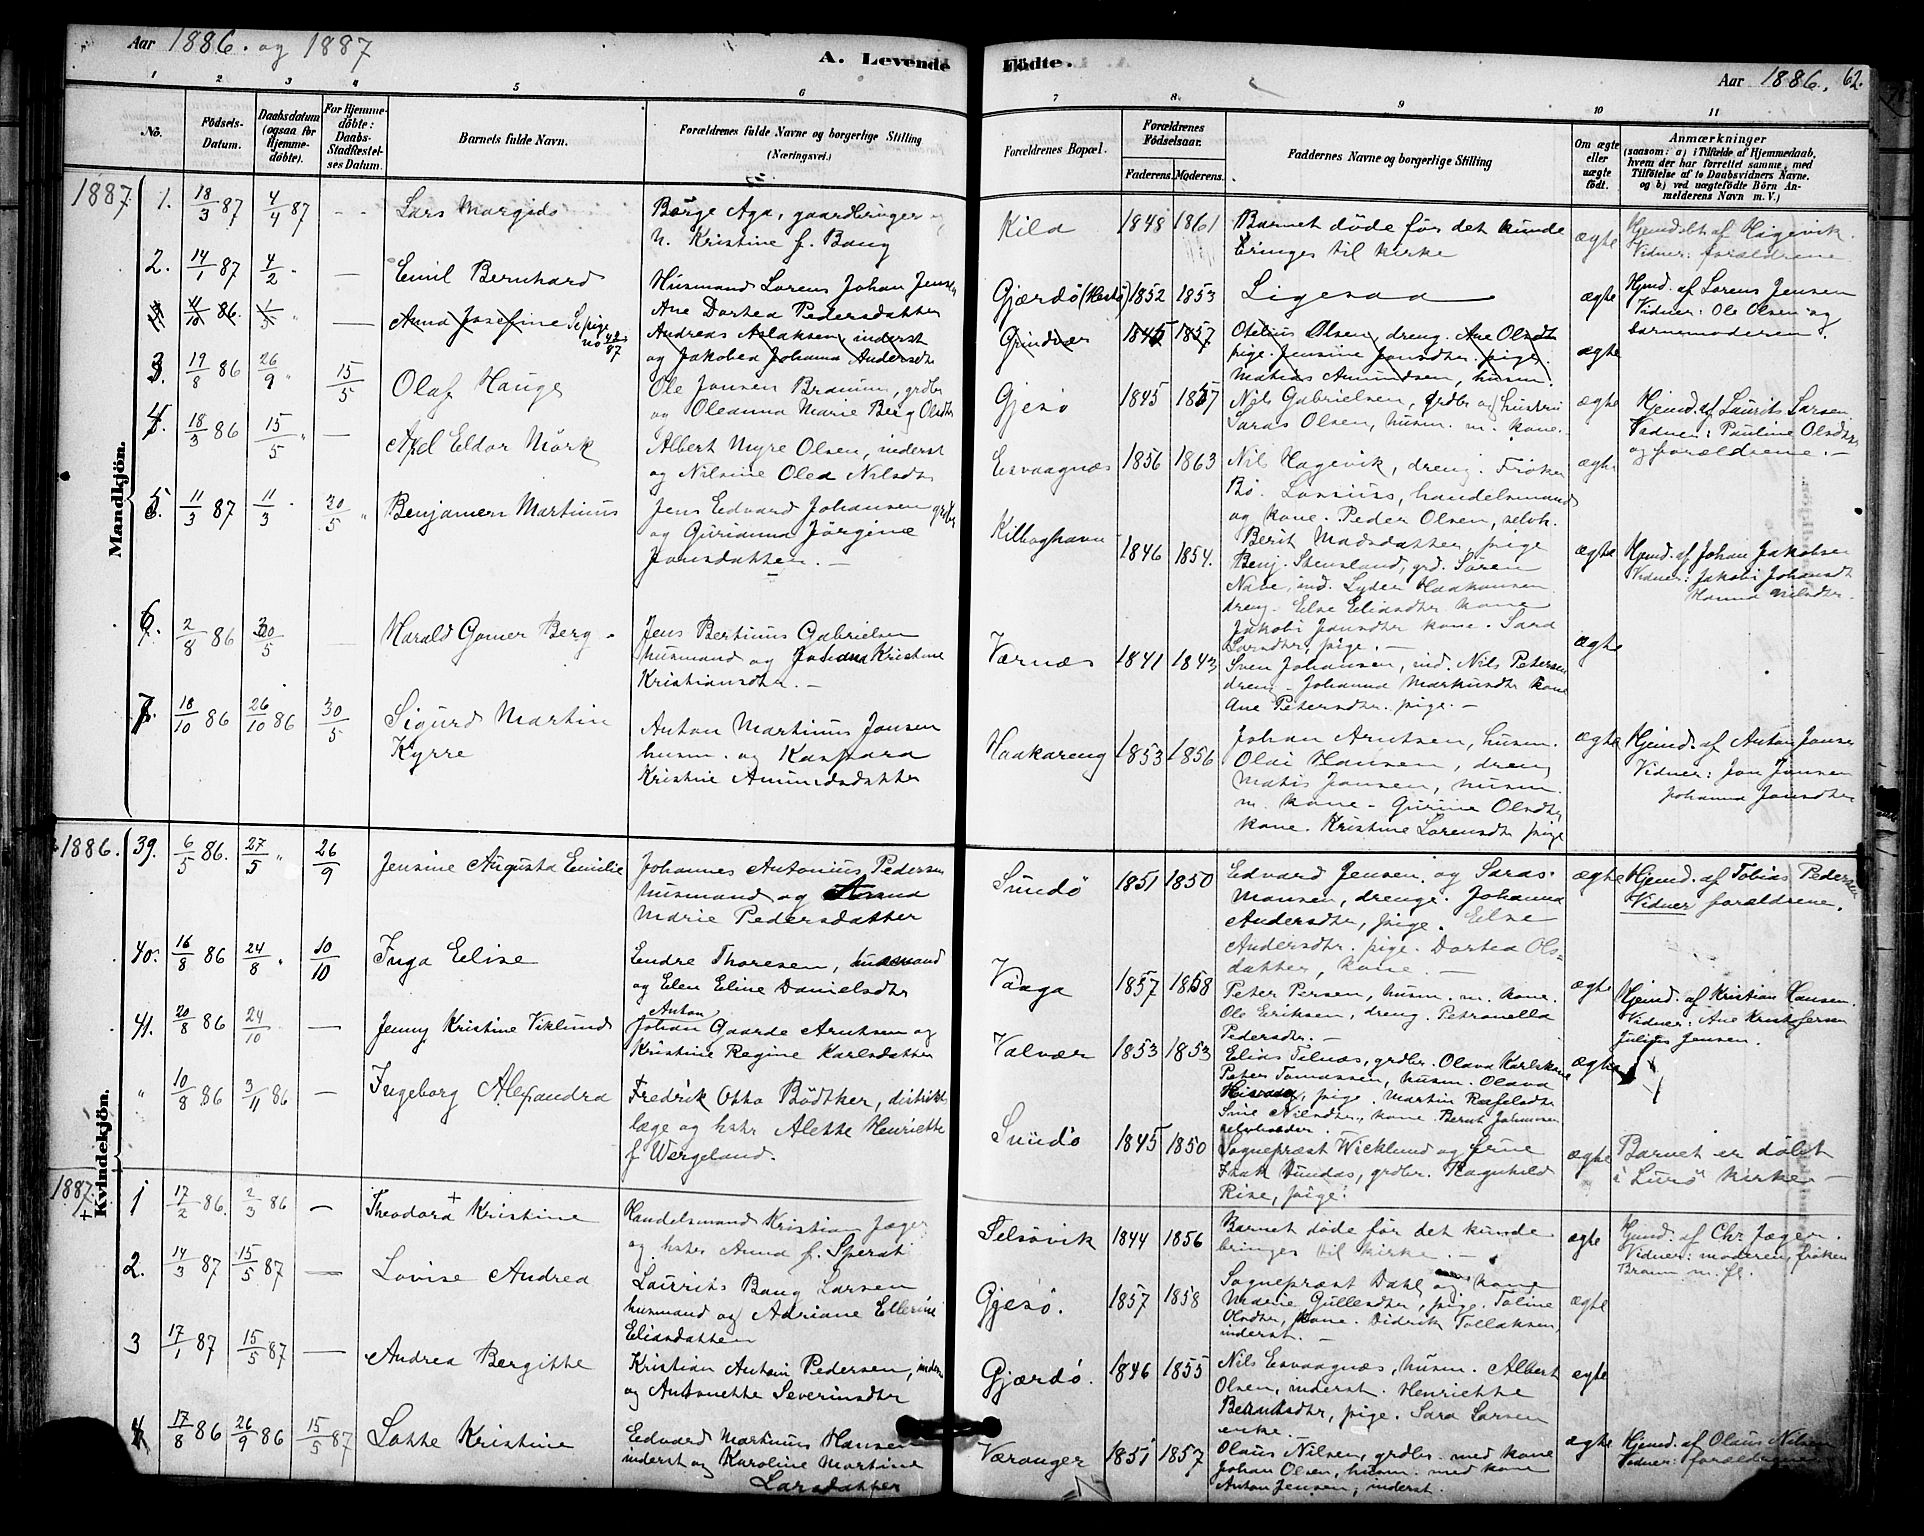 Aar 1886. og 1887
A. Levende Födte.
Aar 1886. 62.
1 2 3 4 5 6 7 8 9 10 11
No.
Födsels-Datum.
Daabsdatum (ogsaa for Hjemmedöbte).
For Hjemmedöbte: Daabs-Stadfæstelses Datum.
Barnets fulde Navn.
Forældrenes fulde Navne og borgerlige Stilling
(Næringsvei.)
Forældrenes Bopæl.
Forældrenes Födselsaar.
Faderens. Moderens.
Faddernes Navne og borgerlige Stilling
Om ægte eller uægte födt.
Anmærkninger
(saasom: a) i Tilfælde af Hjemmedaab, hvem der har forrettet samme, med Tilföielse af to Daabsvidners Navne. og b) ved uægtefödte Börn Anmelderens Navn m. V.)
Mandkjön.
1887
1. 18/3 87 4/4 87 - - Lars Margido
Börge Aga, gaardbruger og
h. Kristine f. Bang
Kila 1848 1861
Barnet døde før det kunde
bringes til kirke
ægte
Hjemdøbt af Hagevik.
Vidner: forældrene
2. 14/1 87 4/2 " — Emil Bernhard
Husmand Lorens Johan Jensen
Ane Dortea Pedersdatter
Gjærdö (Hestö) 1852 1853
Ligesaa
ægte
Hjmd. af Lorens Jensen
Vidner: Ole Olsen og
barnemoderen.
4/10 86. " — Anna Josefine Se pige no 42/87
Andreas Aslaksen, inderst
og Jakobea Johanna Andersdt
Grindvær 1845 1857
Otelius Olsen, dreng. Ane Olsdt
pige. Jensine Jonsdtr. pige.
Matias Amundsen, husm.
ægte
3. 19/8 86 26/9 " 15/5 Olaf Hauge
Ole Jonsen Branum, grdbr
og Oleanna Marie Berg Olsdtr
Gjesö 1845 1857
Nils Gabrielsen, grdbr og hustru
Saras Olsen, husm. m. kone.
ægte
Hjemd. af Laurits Larsen
Vidner: Pauline Olsdtr
og forældrene. —
4. 18/3 86 15/5 " — Axel Eldor Mörk
Albert Myre Olsen, inderst
og Nilsine Olea Nilsdtr
Esvaagnæs 1856 1863
Nils Hagevik, dreng. Frøken
Bö. Lossius, handelsmand
og kone. Peder Olsen, selvh.
Berit Madsdatter, pige
ægte
5. 11/3 87 11/3 " 30/5 " Benjamen Martinus
Jens Edvard Johansen grdbr
og Gurianna Jörgine
Jonsdatter. —
Kilboghavn 1846 1854.
Benj. Stensland, grd. Sören
Nave, ind. Lyder Haakonsen
dreng. Else Eliasdtr. kone
Jakobi Jonsdtr kone. Sara
Larsdtr, pige. —
ægte
Hjmd. af Johan Jakobsen
Vidner: Jakobi Johansdt
Hanna Nilsdtr.
6. 2/8 86 30/5 — Harald Gomer Berg.
Jens Bertinus Gabrielsen
husmand og Johana Kristine
Kristiansdtr. —
Værnæs 1841 1843
Sven Johansen, ind. Nils Petersen
dreng - Johanna Markusdtr kone
Ane Petersdtr. pige. —
ægte
7. 18/10 86 26/10 86 30/5 Sigurd Martin
Kyrre
Anton Martinus Jonsen
husm. og Kaspara
Kristine Amundsdatter
Haakareng 1853 1856
Johan Arntsen, husm.
Olai Hansen, dreng
Matis Jonsen, husm.
m. kone - Gurine Olsdtr
kone. Kristine Lorensdtr pige
ægte
Hjemd. af Anton Jonsen
Vidner: Jon Jonsen
Johanna Jonsdtr
Kvindekjön.
1886.
39. 6/5 86. 27/5 " 26/9 Jensine Augusta Emilie
Johannes Antonius Pedersen
husmand og Anna
Marie Pedersdatter
Sundö 1851 1850
Edvard Jensen og Saras
Monsen, drenge. Johanna
Andersdtr, pige. Else
Andersdtr. pige. Dortea Ols-
datter, kone. —
ægte
Hjemd. af Tobias Pedersen
Vidner forældrene.
40. 16/8 86 24/8 " 10/10 Inga Elise
Endre Thoresen, husmand
og Elen Eline Danielsdtr
Vaaga 1857 1858
Peter Persen, husm. m. kone.
Ole Eriksen, dreng. Petronella
Pedersdtr. —
ægte
Hjemd. af Kristian Hansen.
Vidner: Ane Kristofersen
Julius Jensen.
41. 20/8 86 24/10 — Jenny Kristine Viklund
Anton
Johan Gaarde Arntsen og
Kristine Regine Karlsdatter
Valvær 1853 1853
Elias Tilnæs, grdbr. Olava Karls kone
Peter Tomassen, husm. Olava
pige. Martin Rafelsdtr
Sine Nilsdtr., kone Bernt Johnsen
selvholder.
ægte
" 10/8 86 3/11 86 — Ingeborg Alexandra
Fredrik Otto Bödtker, distrikts-
læge og hstr Alette Henriette
f. Wergeland.
Sundö 1845 1850
Sognepræst Wicklund og frue
Isak Sundös, grdbr. Ragnhild
Rise, pige.
ægte
Barnet er döbt
i Lurö Kirke —
1887.
+
1 17/2 86. 2/3 86 — Theodora + Kristine
Handelsmand Kristian Jæger
og hstr Anna f. Sperat
Selsövik 1844 1856
Barnet døde før det kunde
bringes til kirke. —
ægte
Hjmd. af Chr. Jæger.
Vidner: moderen, frøken
Braun m. fl.
2. 14/3 87 15/5 87 — Lovise Andrea
Laurits Bang Larsen
husmand og Adriane Ellerine
Eliasdatter
Gjesö. 1857 1858
Sognepræst Dahl og kone
Marie Gullesdtr, pige. Toline
Olsdtr, kone. Didrik Tollaksen,
inderst. —
ægte
3 17/1 87 15/5 87 — Andrea Bergitte
Kristian Anton Pedersen, inderst
og Antonette Severinsdtr
Gjærdö. 1846 1855
Nils Esvaagnæs, husm. Albert
Olsen, inderst. Henriette
Berntsdtr, pige. Sara Larsen
enke. —
ægte
4 17/8 86 26/9 86 15/5 87 Lotte Kristine
Edvard Martinus Hansen
inderst og Karoline Martine
Larsdatter
Væranger 1851 1857
Olaus Nilsen, grdbr. med kone
Johan Olsen, husm. med kone
Anton Jensen, inderst.
ægte
Hjemd. af Olaus Nilsen
Vidner: forældrene